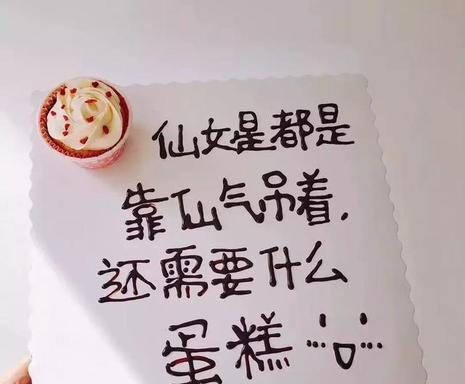 仙女星都是
靠仙气吊着,
还需要什么
蛋糕